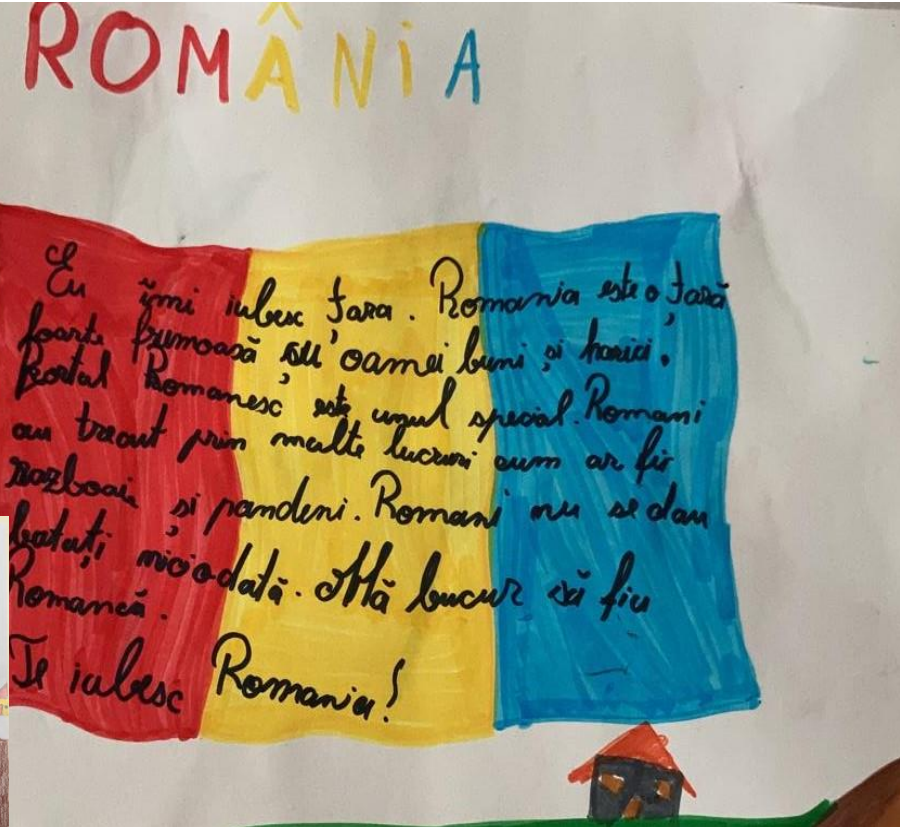 ROMÂNiA
Eu îmi iubesc țara. Romania este o țară
foarte frumoasă cu oamei buni și harici.
Portal Romanesc este unul special. Romani
au trecut prin multe lucruri cum ar fir
razboaie si pandeni. Romani nu se dau
batați niciodată. Mă bucur să fiu
Romancă.
Te iubesc Romania!